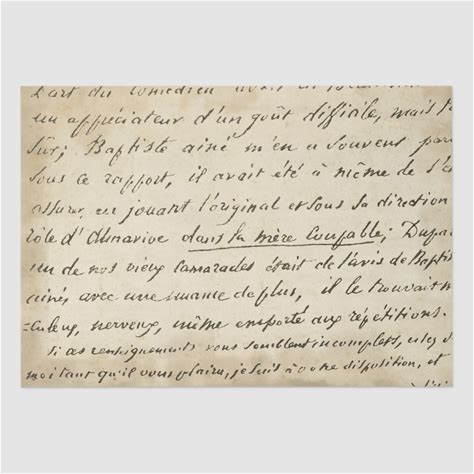 L'art du Comédien
un appréciateur d'un goût difficile, mais
sûr; Baptiste ainé m'en a souvent par
sous ce rapport, il avait été à même de s'a
assurer, en jouant l'original et sous sa direction
rôle d'Almavive dans la mère Coupable; Dupa
un de nos vieux Camarades était de l'avis de Baptis
ainé, avec une nuance de plus, il le trouvait
culeux, nerveux, même emporté aux répétitions.
Si ces renseignements vous semblent incomplets,
moi tant qu'il vous plaira, je suis à votre disposition, et